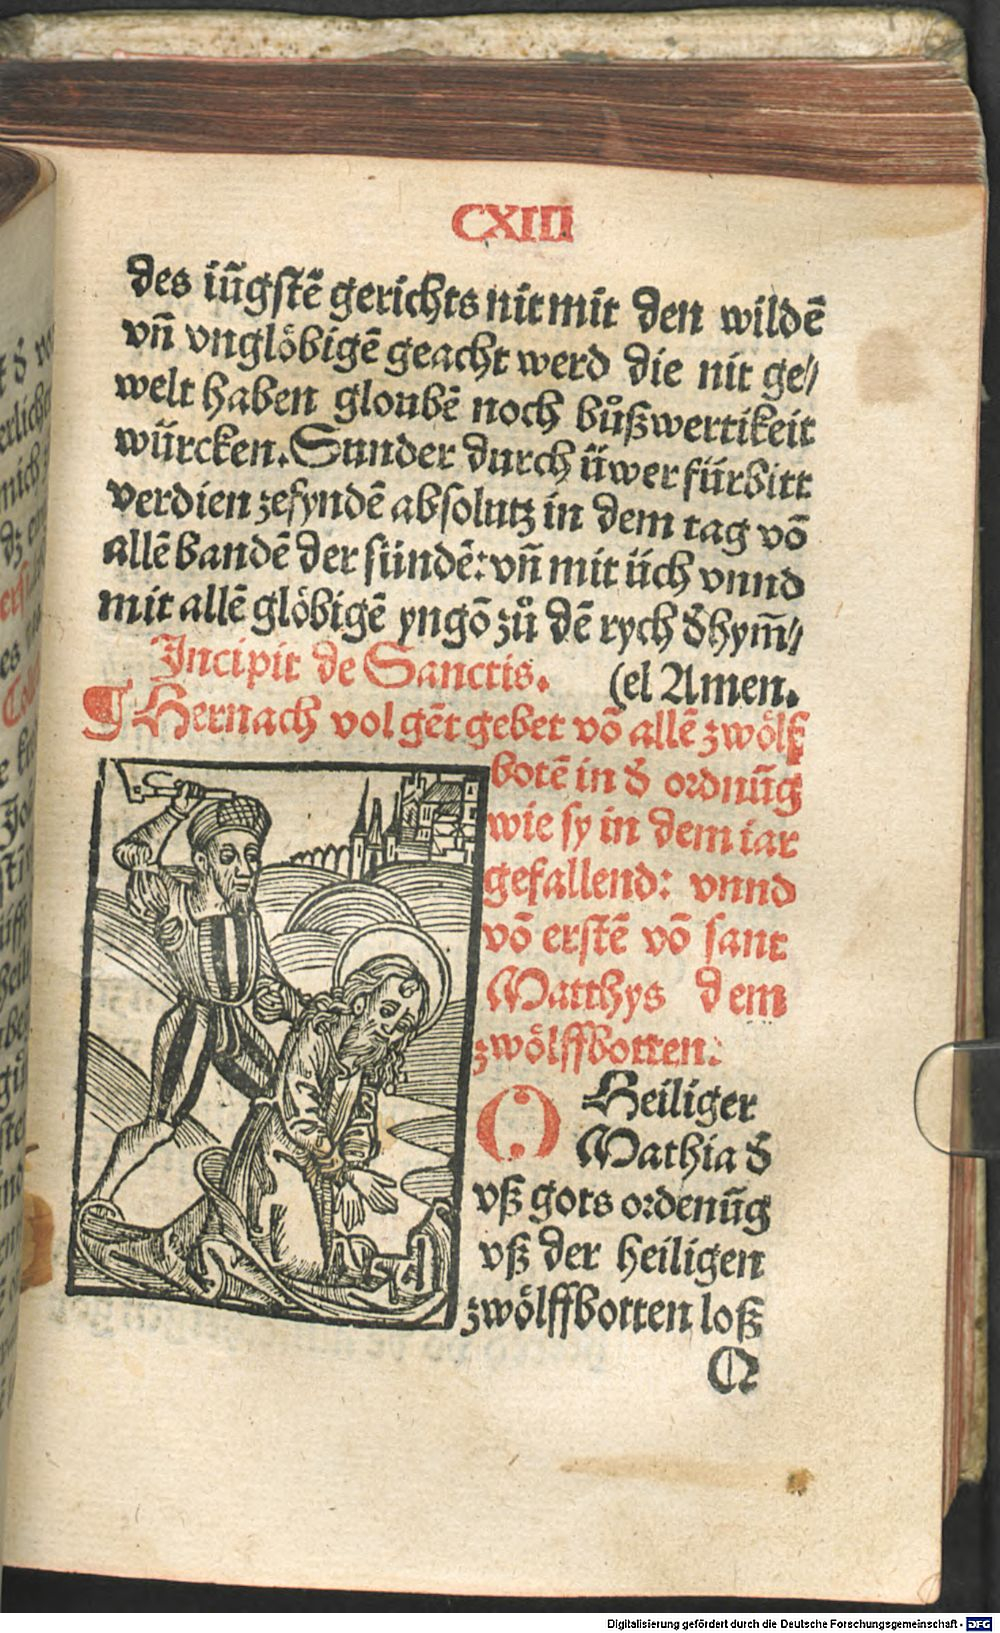 CXIII
des iūgstē gerichts nit mit den wildē
vn̄ vnglöbigē geacht werd die nit ge//
welt haben gloubē noch bůßwertikeit
würcken. Sunder durch üwer fürbitt
verdien zefyndē absolutz in dem tag vō
allē bandē der sündē: vn̄ mit üch vnnd
mit allē glöbigē yngō zů dē rych d̄ hym̄//
(el Amen.
Incipit de Sanctis.
¶ Hernach volgēt gebet vō allē zwölf
botē in d̄ ordnūg
wie sy in dem iar
gefallend: vnnd
vō erstē vō sant
Matthys dem
zwölffbotten.
O Heiliger
Mathia d̄
vß gots ordenūg
vß der heiligen
zwölffbotten loß
Q
Digitalisierung gefördert durch die Deutsche Forschungsgemeinschaft - DFG